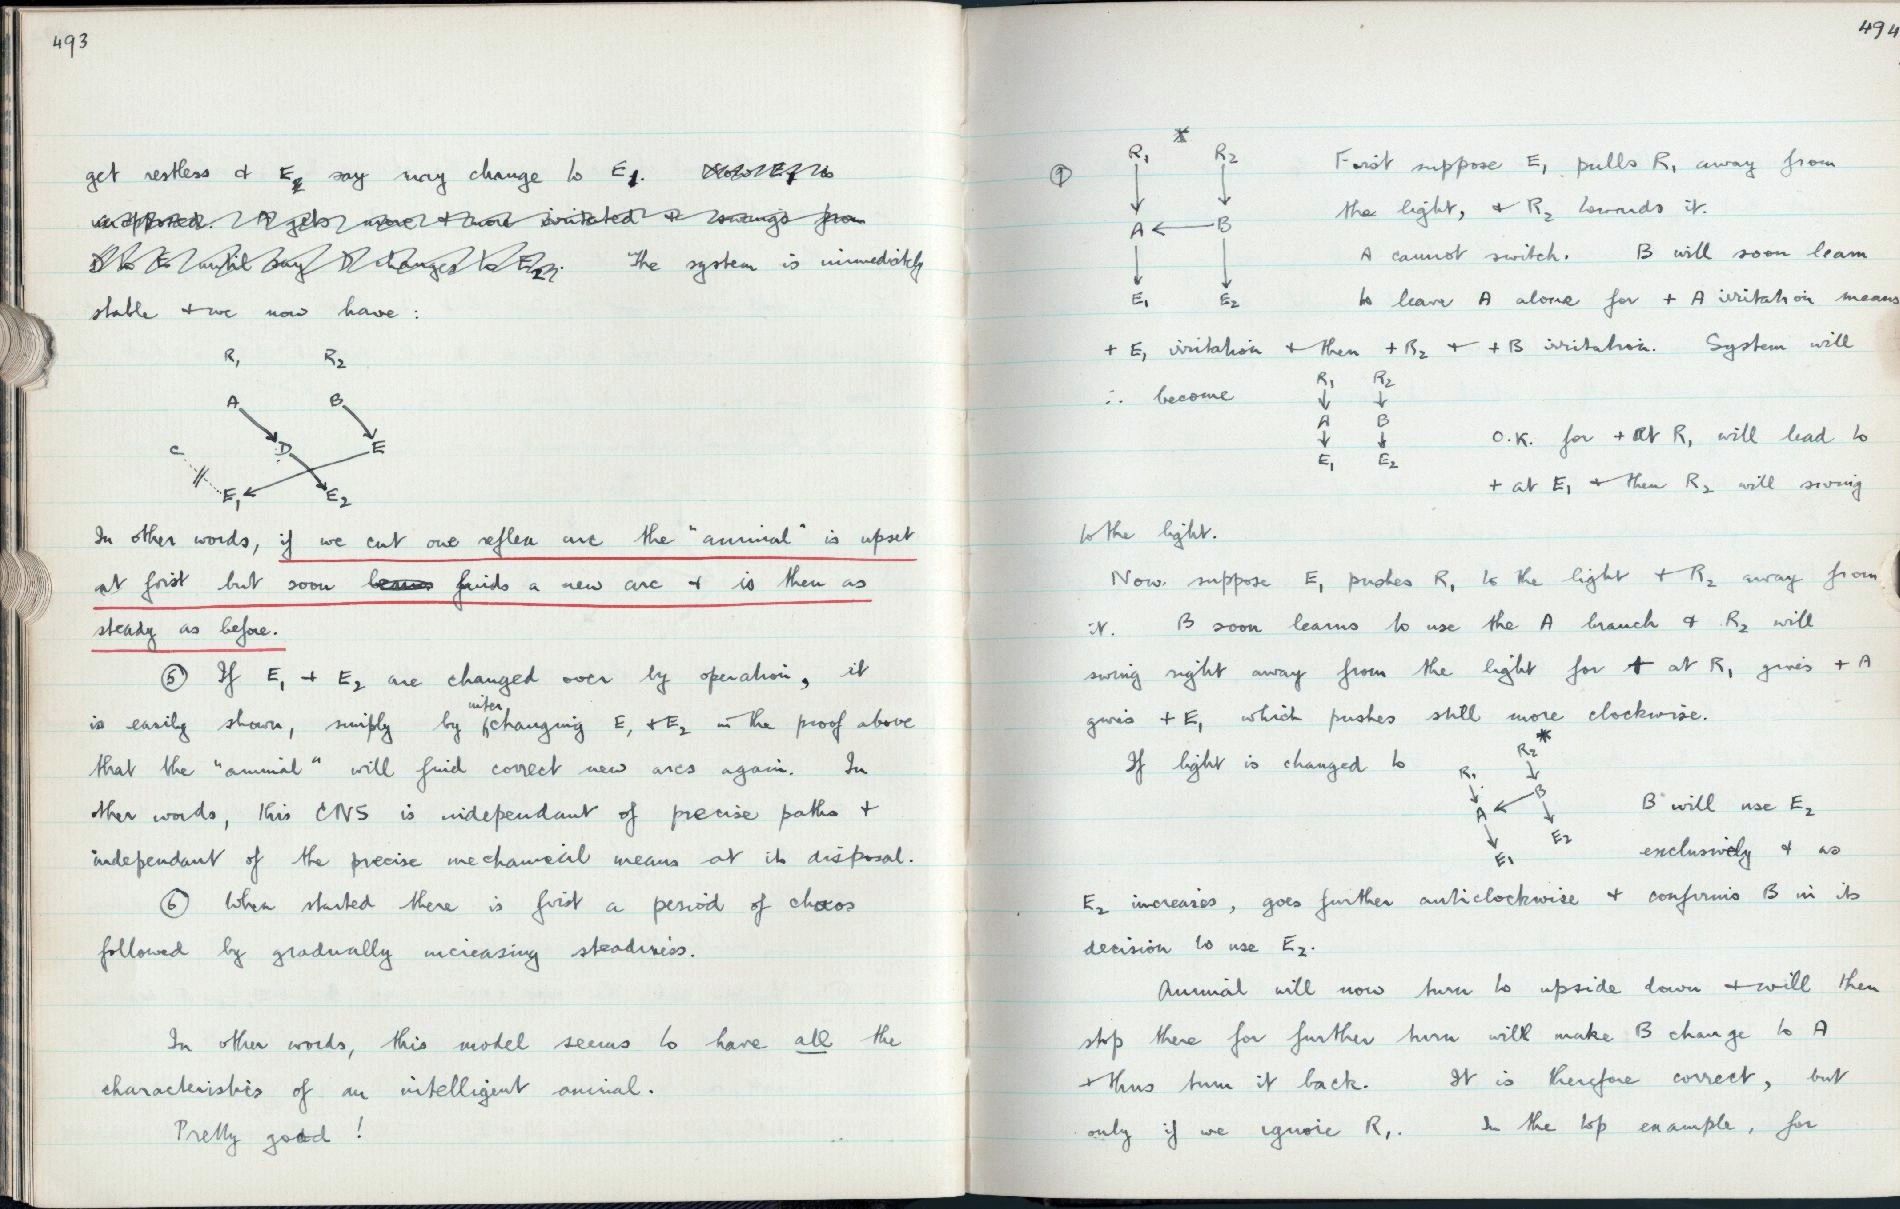 493
get restless & E2 say may change to E1. Now E1 is
unopposed. A gets more & more irritated & swings from
D to E until say D changes to E2. The system is immediately
stable & we now have :
R1 R2
A B
C D E
E1 E2
In other words, if we cut one reflex arc the "animal" is upset
at first but soon learns finds a new arc & is then as
steady as before.
⑤ If E1 & E2 are changed over by operation, it
is easily shown, simply by interchanging E1 & E2 in the proof above
that the "animal" will find correct new arcs again. In
other words, this CNS is independant of precise paths &
independant of the precise mechanical means at its disposal.
⑥ When started there is first a period of chaos
followed by gradually increasing steadiness.
In other words, this model seems to have all the
characteristics of an intelligent animal.
Pretty good !
494
*
① R1 R2 First suppose E1 pulls R1 away from
the light, & R2 towards it.
A ← B A cannot switch. B will soon learn
E1 E2 to leave A alone for + A irritation means
+ E1 irritation & then + R2 & + B irritation. System will
∴ become R1 R2
A B
E1 E2
O.K. for + at R1 will lead to
+ at E1 & then R2 will swing
to the light.
Now suppose E1 pushes R1 to the light & R2 away from
it. B soon learns to use the A branch & R2 will
swing right away from the light for + at R1 gives + A
gives + E1 which pushes still more clockwise.
If light is changed to R1 R2 *
A B B will use E2
E1 E2 exclusively & as
E2 increases, goes further anticlockwise & confirms B in its
decision to use E2.
Animal will now turn to upside down & will then
stop there for further turn will make B change to A
& thus turn it back. It is therefore correct, but
only if we ignore R1. In the top example, for